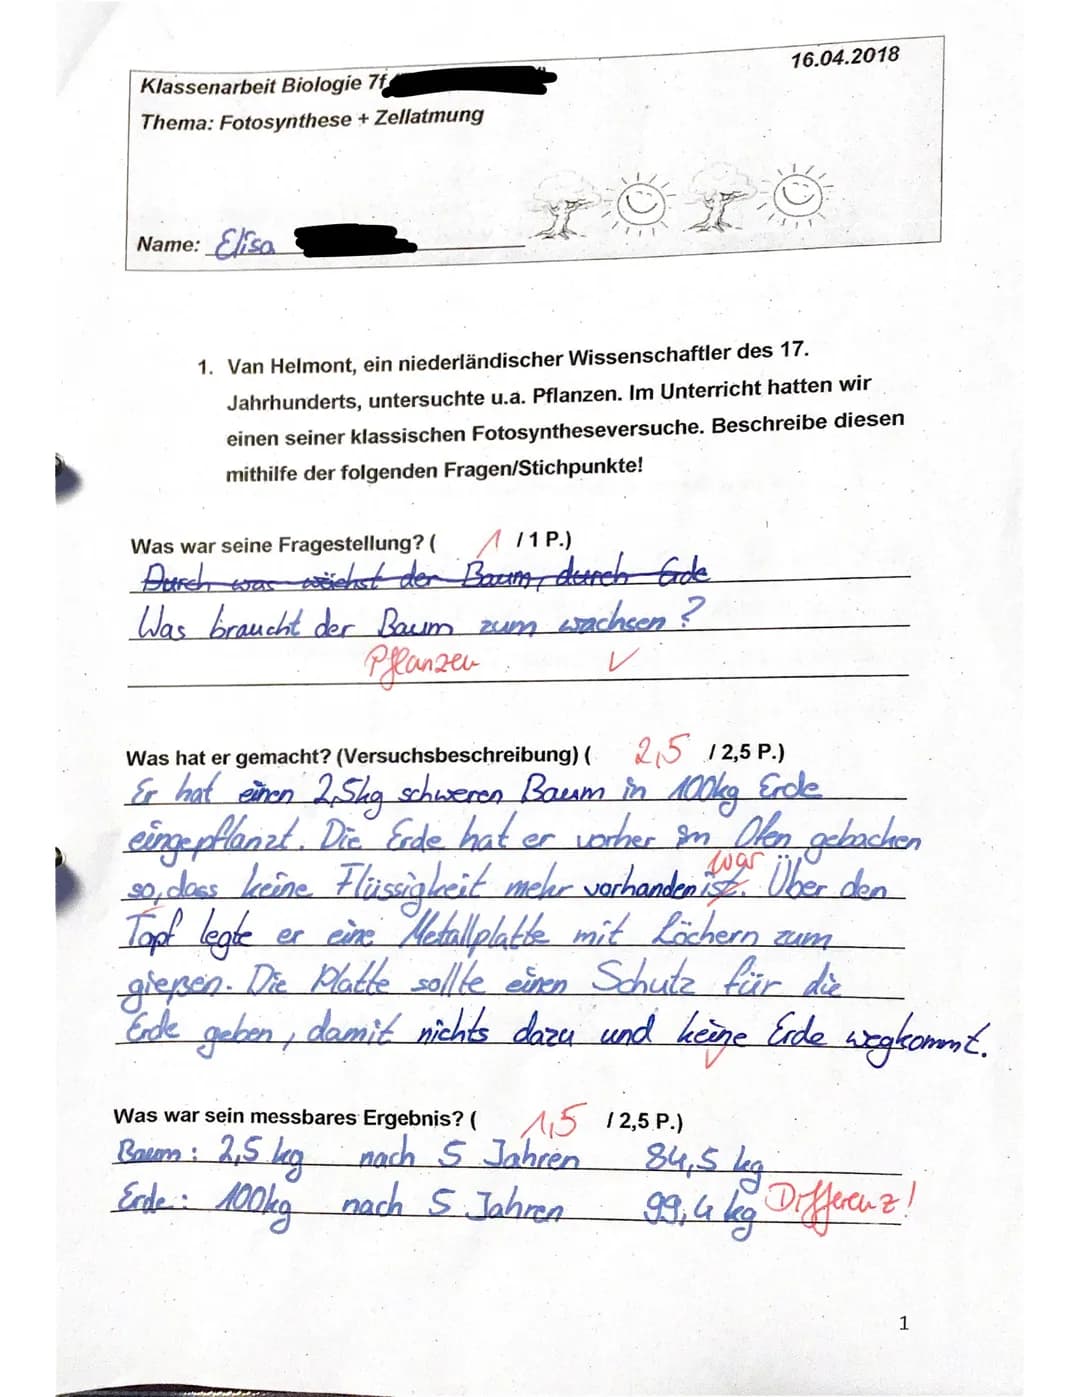 Klassenarbeit Biologie 7f
16.04.2018
Thema: Fotosynthese + Zellatmung
Name: Elisa
1. Van Helmont, ein niederländischer Wissenschaftler des 17.
Jahrhunderts, untersuchte u.a. Pflanzen. Im Unterricht hatten wir
einen seiner klassischen Fotosyntheseversuche. Beschreibe diesen
mithilfe der folgenden Fragen/Stichpunkte!
Was war seine Fragestellung? ( 1 / 1 P.)
Durch was wächst der Baum, durch Erde
Was braucht der Baum zum wachsen?
Pflanzen ✓
Was hat er gemacht? (Versuchsbeschreibung) ( 2,5 / 2,5 P.)
Er hat einen 2,5kg schweren Baum in 100kg Erde
eingepflanzt. Die Erde hat er vorher im Ofen gebacken
war
so, dass keine Flüssigkeit mehr vorhanden ist. Über den
Topf legte er eine Metallplatte mit Löchern zum
gießen. Die Platte sollte einen Schutz für die
Erde geben, damit nichts dazu und keine Erde wegkommt.
✓
Was war sein messbares Ergebnis? ( 1,5 / 2,5 P.)
Baum: 2,5 kg nach 5 Jahren 84,5 kg
Erde: 100kg nach 5 Jahren 99,4 kg Differenz!
1